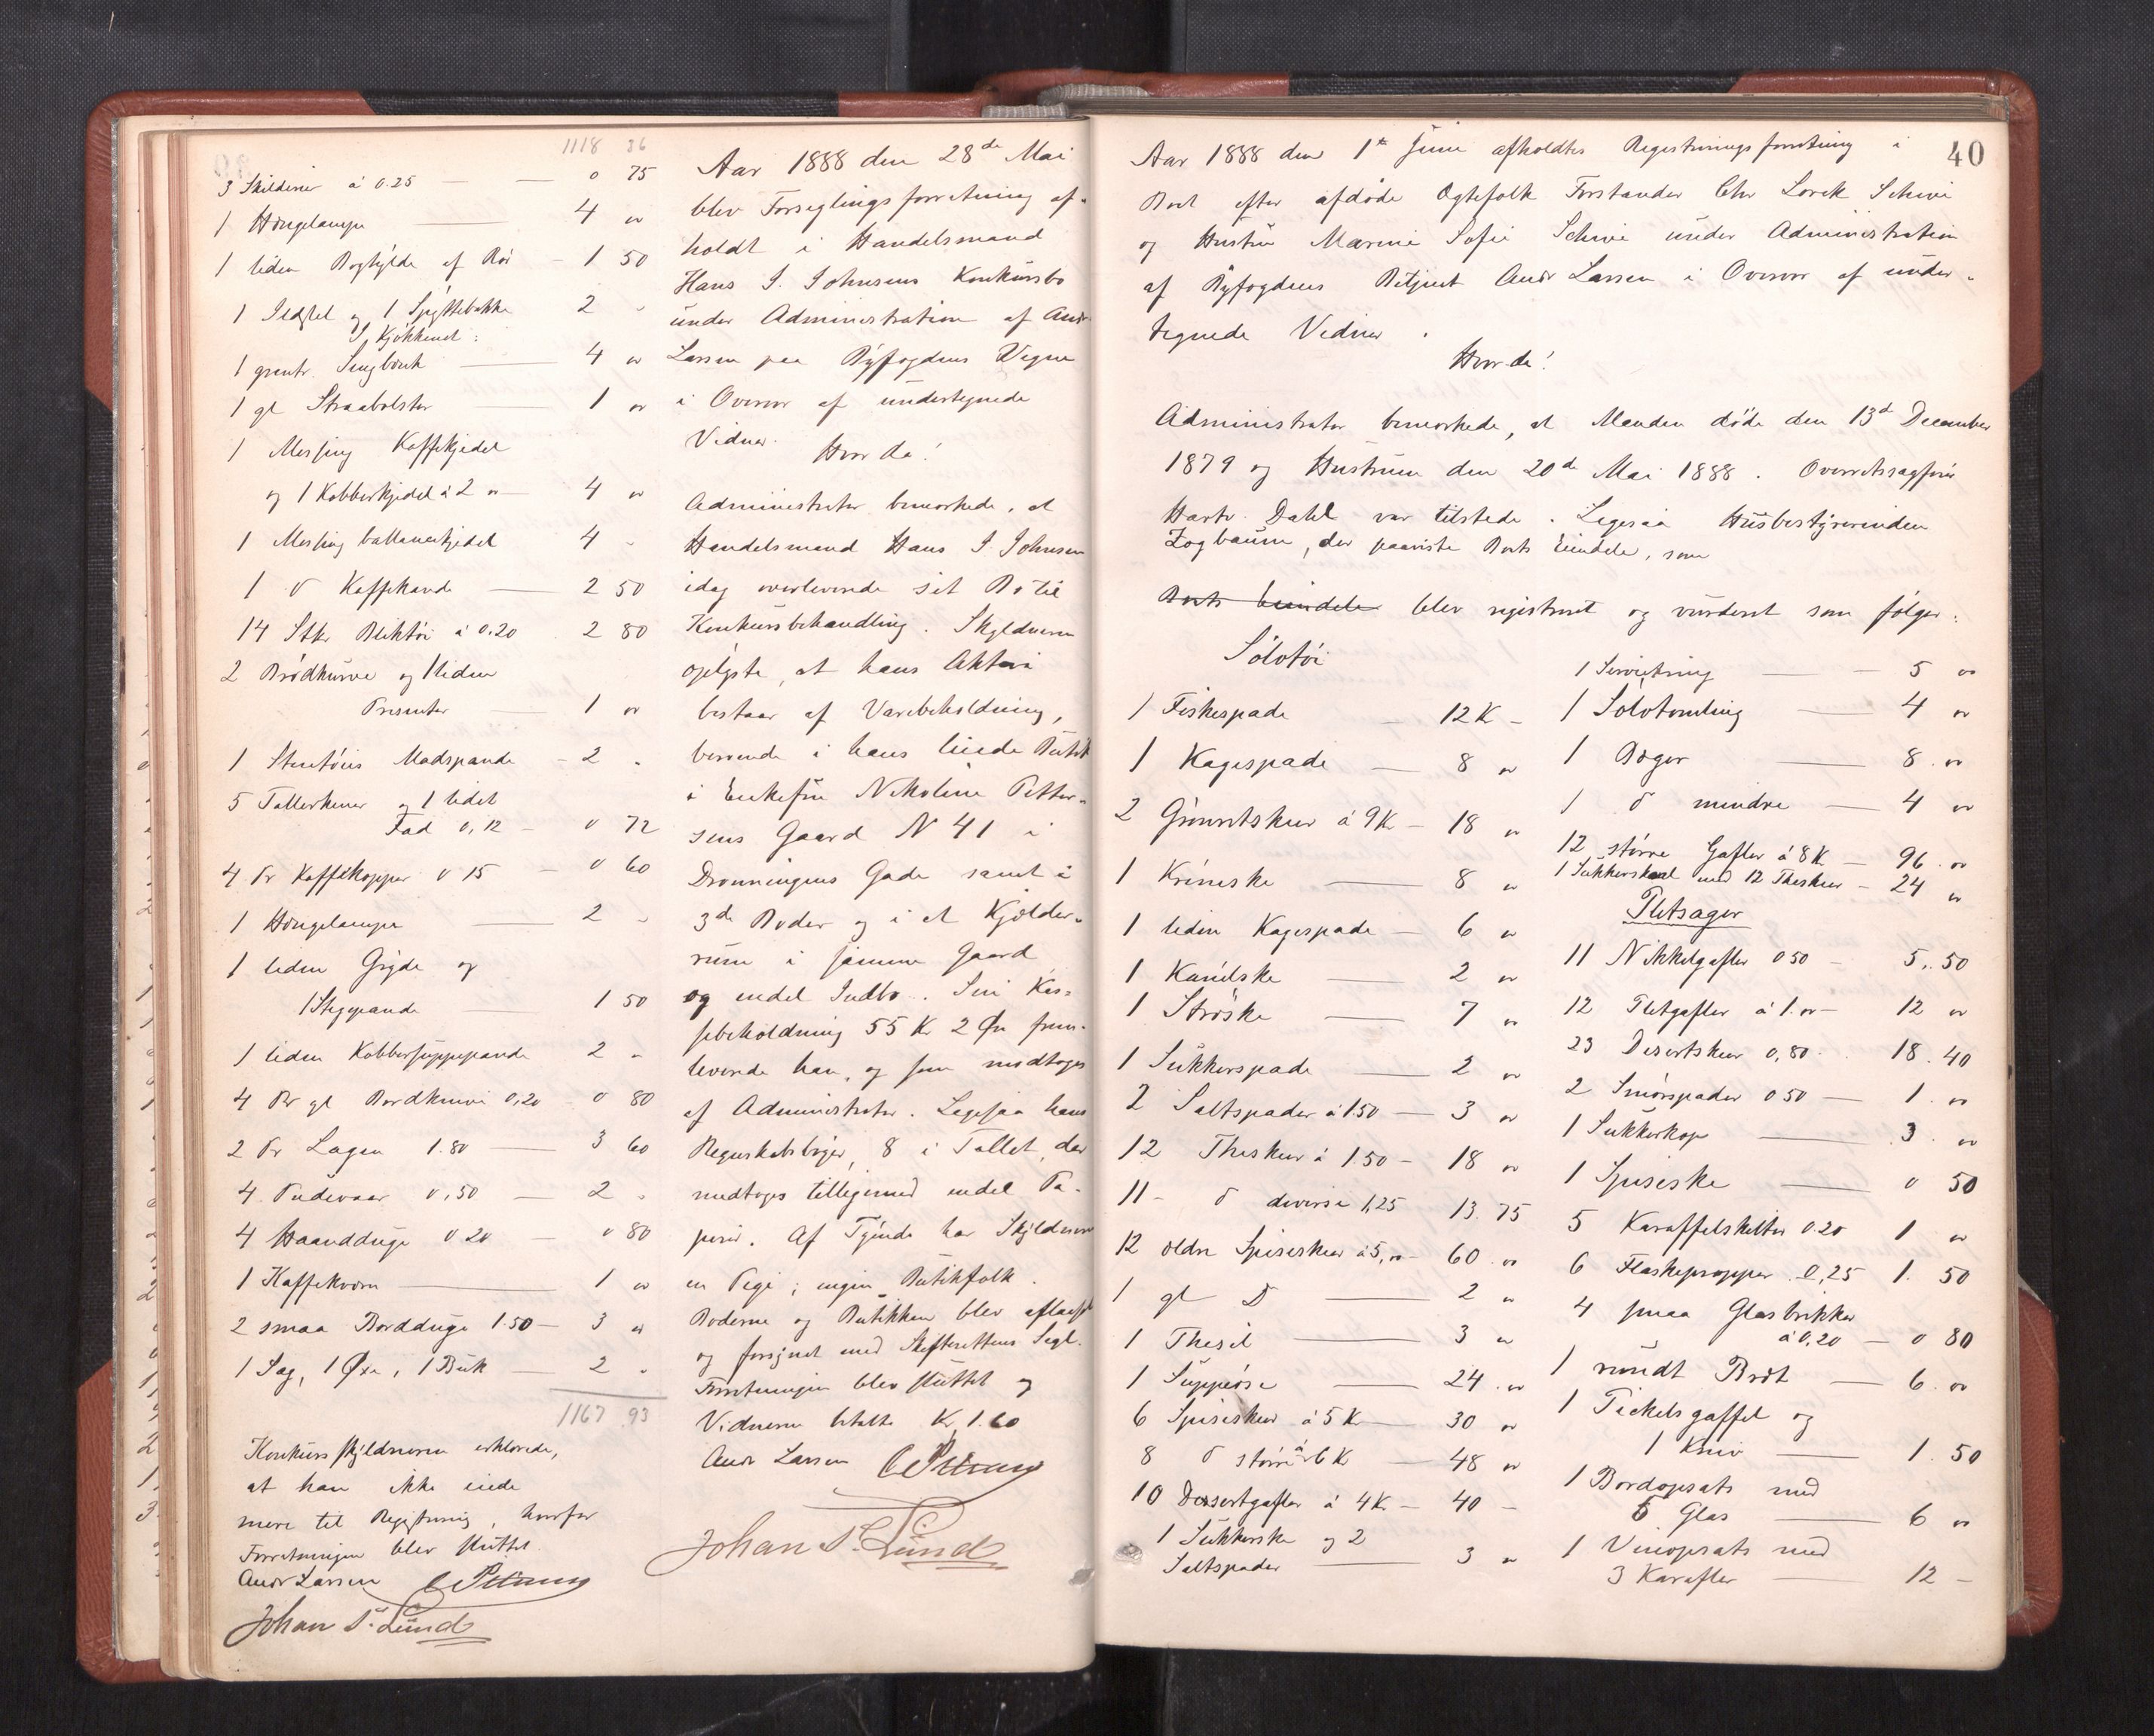 1118 36
3 Skilderier á 0.25 — — 0 75
1 Hængelampe — 4 "
1 liden Boghylde af Rør - 1 50
1 Ildstel og 1 Spyttebakke 2 -
I Kjøkkenet:
1 grønt — 4 "
1 gl Straabolster 1 "
1 Messing Kaffekjedel
og 1 Kobberkjedel á 2 " 4 "
1 Messing kjedel 4 -
1 d Kaffekande — 2 50
14 Stkr Bliktøi á 0,20 2 80
2 Brødkurve og 1 liden
Presenter — 1 "
1 Stentøies Madspande - 2 -
5 Tallerkener og 1 lidet
Fad 0,12 - 0 72
4 Pr Kaffekopper 0 15 - 0 60
1 Hængelampe — 2 -
1 liden Gryde og
1 Stegepande — 1 50
1 liden Kobbersuppepande 2 -
4 Pr gl Bordknive 0,20 0 80
2 Pr Lagen 1.80 — 3 60
4 Pudevaar 0,50 — 2 -
4 Haandduge 0 20 — 0 80
1 Kaffekværn — 1 "
2 smaa Borddúge 1.50 — 3 "
1 Sag, 1 Øxe, 1 Buk — 2 -
1167 93
Konkursskyldneren erklærede,
at han ikke eiede
mere til Registrering, hvorfor
Forretningen blev sluttet.
Andr Larsen
Johan S. Lund
Aar 1888 den 28de Mai
blev Forseglingsforretning af-
holdt i Handelsmand
Hans J. Johnsens Konkursbo
under Administration af Andr
Larsen paa Byfogdens Vegne
i Overvær af undertegnede
Vidner.
Hvor da!
Administrator bemærkede, at
Handelsmand Hans J. Johnsen
idag overleverede sit Bo til
Konkursbehandling. Skyldneren
oplyste, at hans Aktiva
bestaar af Varebeholdning,
beroende i hans leiede Butik
i Enkefru Nikoline Petter-
sens Gaard N 41 i
Dronningens Gade samt i
3de Boder og i et Kjælder-
rum i samme Gaard
og endel Indbo. Sin Kas-
sebeholdning 55 Kr 2 Øre frem-
leverede han, og som modtoges
af Administrator. Ligesaa hans
Regnskabsbøger, 8 i Tallet, der
modtoges tilligemed endel Pa-
pirer. Af Tyende har Skyldneren
en Pige; ingen Butikfolk.
Boderne og Butikken blev aflaast
og forsynet med Skifterettens Segl.
Forretningen blev sluttet og
Vidnerne betalte Kr 1.60
Andr Larsen
Johan S. Lund
40
Aar 1888 den 1ste Juni afholdtes Registreringsforretning i
Boet efter afdøde Ægtefolk Forstander Chr Lorck Schive
og Hustru Marine Sofie Schive under Administration
af Byfogdens Betjent Andr Larsen i Overvær af under-
tegnede Vidner.
Hvor da!
Administrator bemærkede, at Manden døde den 13de December
1879 og Hustruen den 20de Mai 1888. Overretssagfører
Hartv. Dahl var tilstede. Ligesaa Husbestyrerinden
Zogbaum, der paaviste Boets Eiendele, som
Boets Eiendele blev registreret og vurderet som følger:
Sølvtøi
1 Fiskespade - 12 K -
1 Kagespade — 8 "
2 Grøntskeer á 9 K - 18 "
1 — 8 "
1 liden Kagespade — 6 "
1 — 2 "
1 Strøske — 7 "
1 Sukkerspade — 2 "
2 Saltspader á 1.50 — 3 "
12 Theskeer á 1.50 - 18 "
11 - d diverse 1,25 13.75
12 ældre Spiseskeer á 5," - 60 "
1 gl D — 2 "
1 Thesil — 3 "
1 Suppeøse — 24 "
6 Spiseskeer á 5 K — 30 "
8 d større á 6 Kr — 48 "
10 Dessertgafler á 4 K — 40 -
1 Sukkerske og 2
Saltspader — 3 "
1 Serviètring — 5 "
1 Sølvtumling — 4 "
1 Bæger — 8 "
1 d mindre — 4 "
12 større Gafler á 8 K — 96 "
1 Sukkerskaal med 12 Theskeer - 24 "
Pletsager
11 Nikkelgafler 0 50 - 5,.50
12 Pletgafler á 1." - 12 "
23 Desertskeer 0,80. 18.40
2 Smørspader 0 50 — 1. "
1 Sukkerkop — 3. "
1 Spiseske — 0 50
5 Karaffelskilter 0.20 1 "
6 Flaskepropper 0,25 1. 50
4 smaa Glasbrikker
á 0,20 — 0 80
1 rundt Bræt — 6. "
1 Pickelsgaffel og
1 Kniv — 1.50
1 Bordopsats med
6 Glas — 6 "
1 Vinopsats med
3 Karafler — 12 -